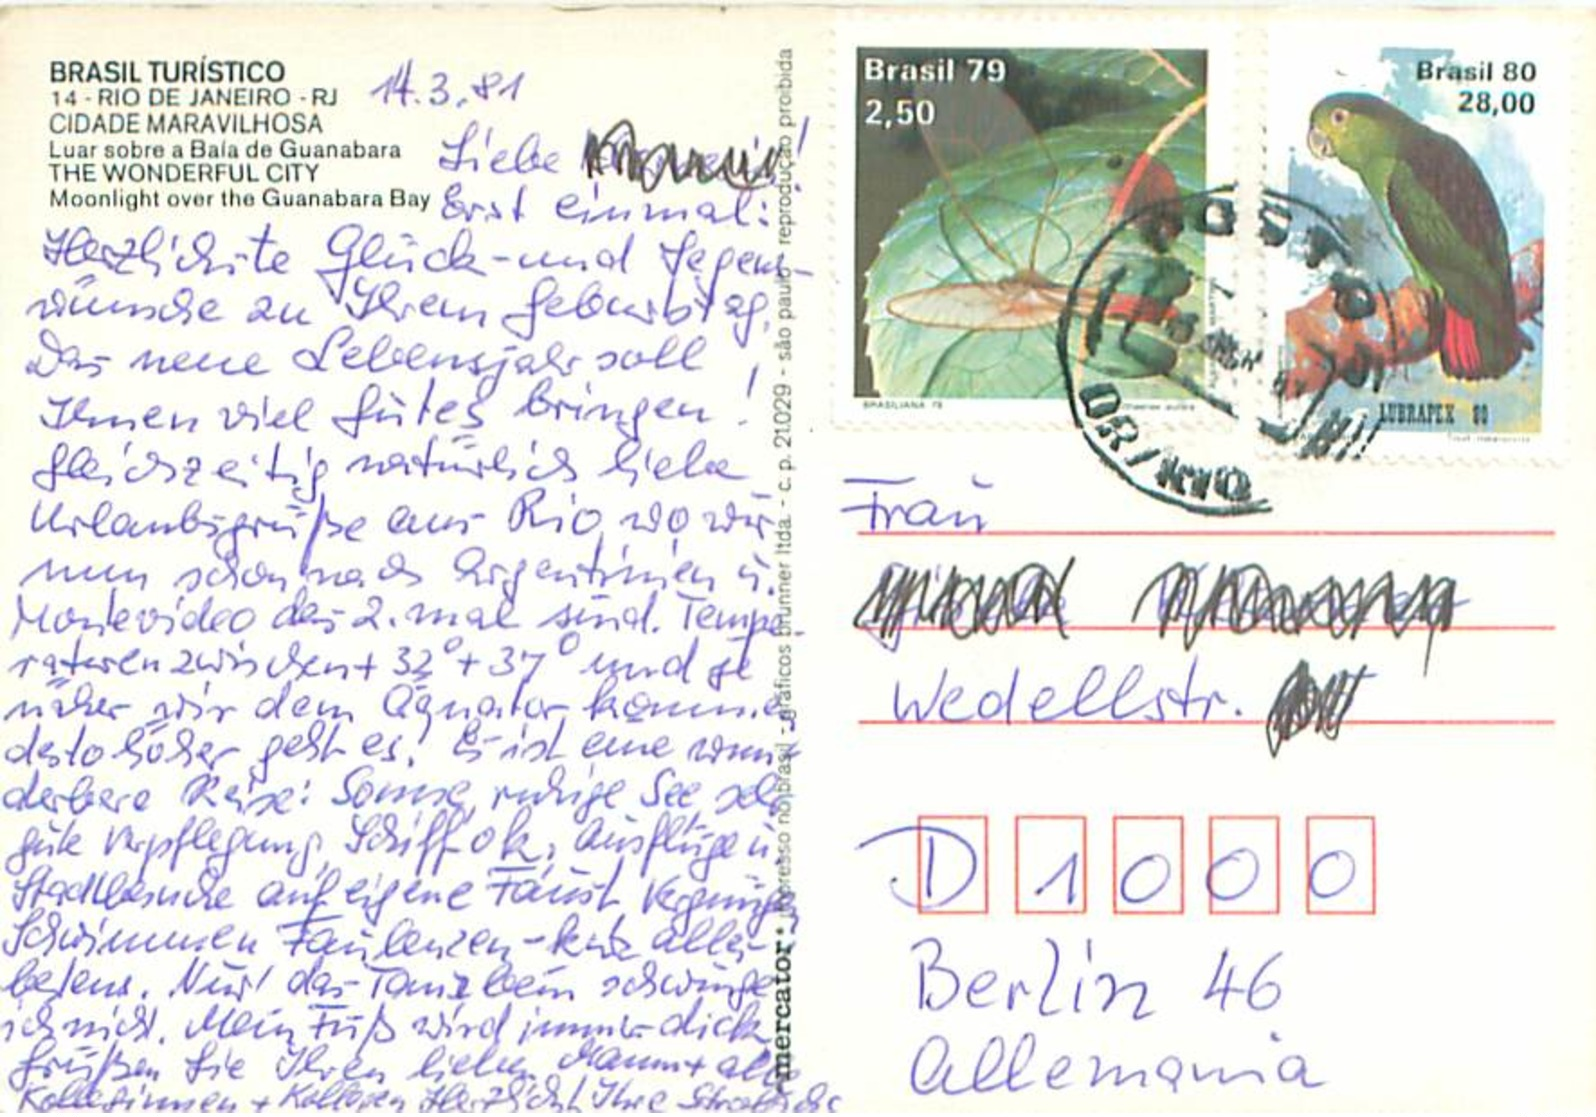 BRASIL TURÍSTICO
14 - RIO DE JANEIRO - RJ
CIDADE MARAVILHOSA
Luar sobre a Baía de Guanabara
THE WONDERFUL CITY
Moonlight over the Guanabara Bay
14.3.81
Liebe
Erst einmal:
Herzlichste Glück- und Segens-
wünsche zu Ihrem Geburtstag.
Das neue Lebensjahr soll
Ihnen viel Gutes bringen!
Gleichzeitig natürlich liebe
Urlaubsgrüße aus Rio, wo wir
nun schon nach Argentinien u.
Montevideo das 2. mal sind. Tempe-
raturen zwischen + 32° + 37° und je
näher wir dem Äquator komme
desto höher geht es! Es ist eine wun-
derbare Reise: Sonne, ruhige See, sehr
gute Verpflegung, Schiff ok, Ausflüge u.
Stadtbesuche auf eigene Faust
Schwimmen Faulenzen - kurz alles
bestens. Nur das Tanzbein schwinge
ich nicht. Mein Fuß wird immer dick
Grüßen Sie Ihren lieben Mann + alle
Kolleginnen + Kollegen Herzlichst Ihre
mercator
impresso no brasil - gráficos brunner ltda. - c. p. 21.029 - são paulo - reprodução proibida
Brasil 79
2,50
BRASILIANA 79
Brasil 80
28,00
LUBRAPEX 80
DR/
Frau
Wedellstr.
D 1 0 0 0
Berlin 46
Allemania